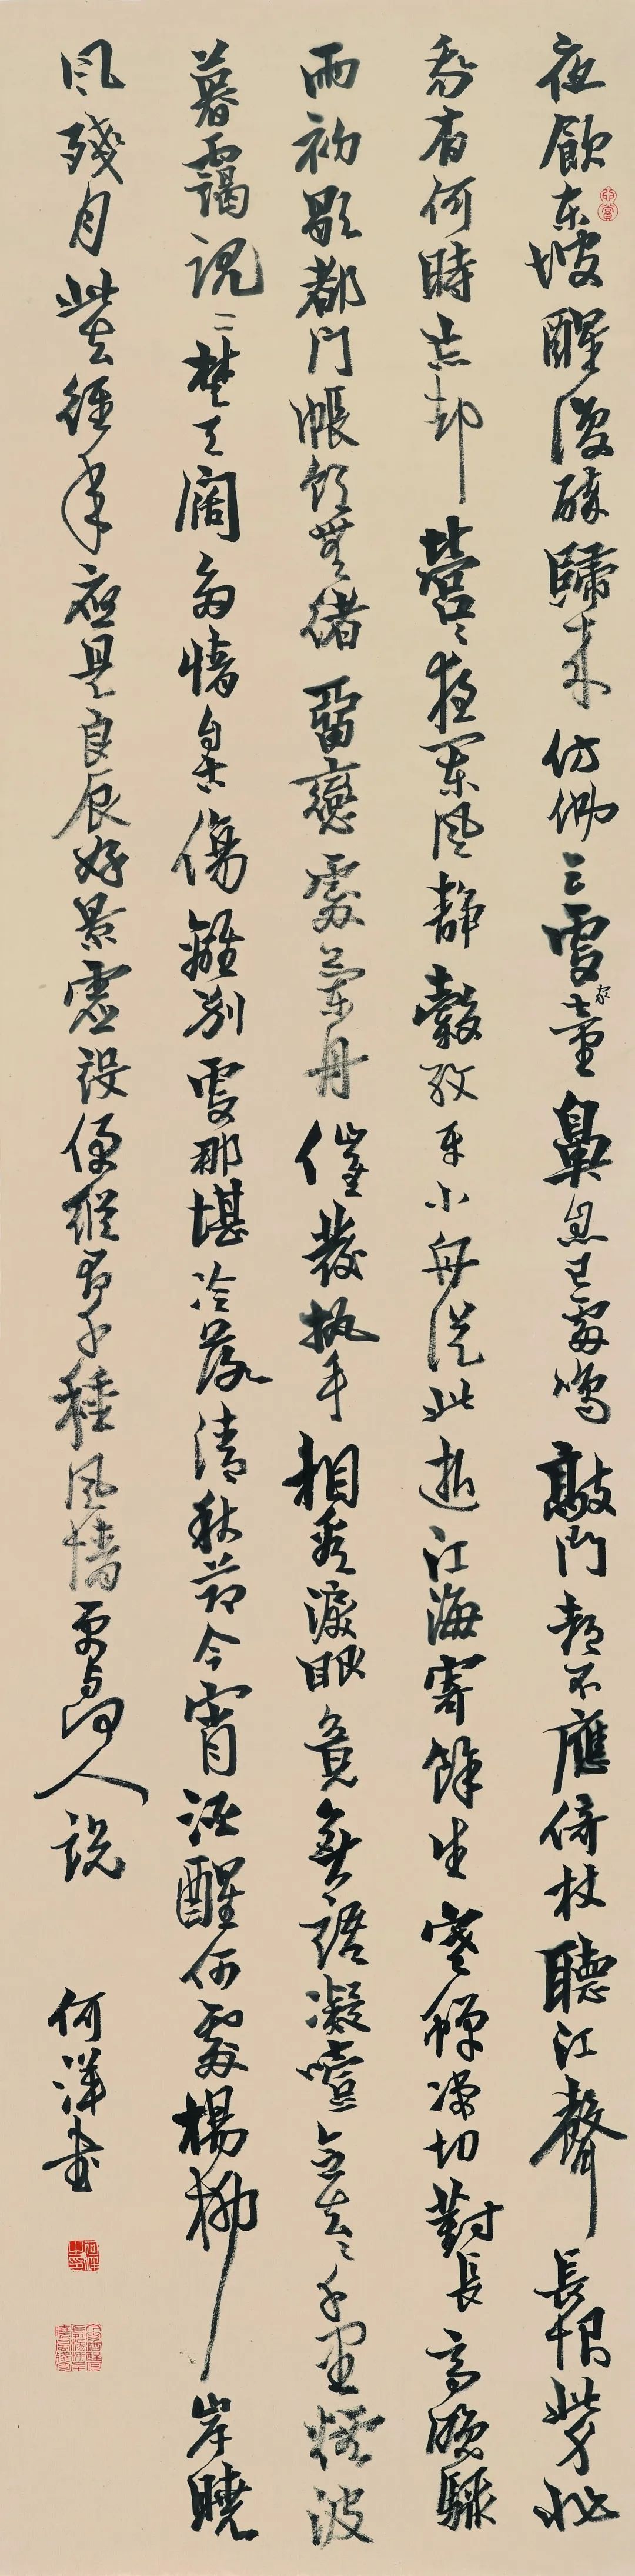 夜飲东坡醒復醉歸来仿佛三更家童鼻息已雷鳴敲門都不應倚杖聽江聲長恨此身非
我有何時忘却營々夜闌風靜縠紋平小舟從此逝江海寄餘生寒蟬淒切對長亭晚驟
雨初歇都門帳飲無緒留戀處蘭舟催發執手相看淚眼竟無語凝噎念去々千里煙波
暮靄沉々楚天闊多情自古傷離別更那堪冷落清秋節今宵酒醒何處楊柳岸曉
風殘月此去經年應是良辰好景虛設便縱有千種風情更與何人說
何洋书